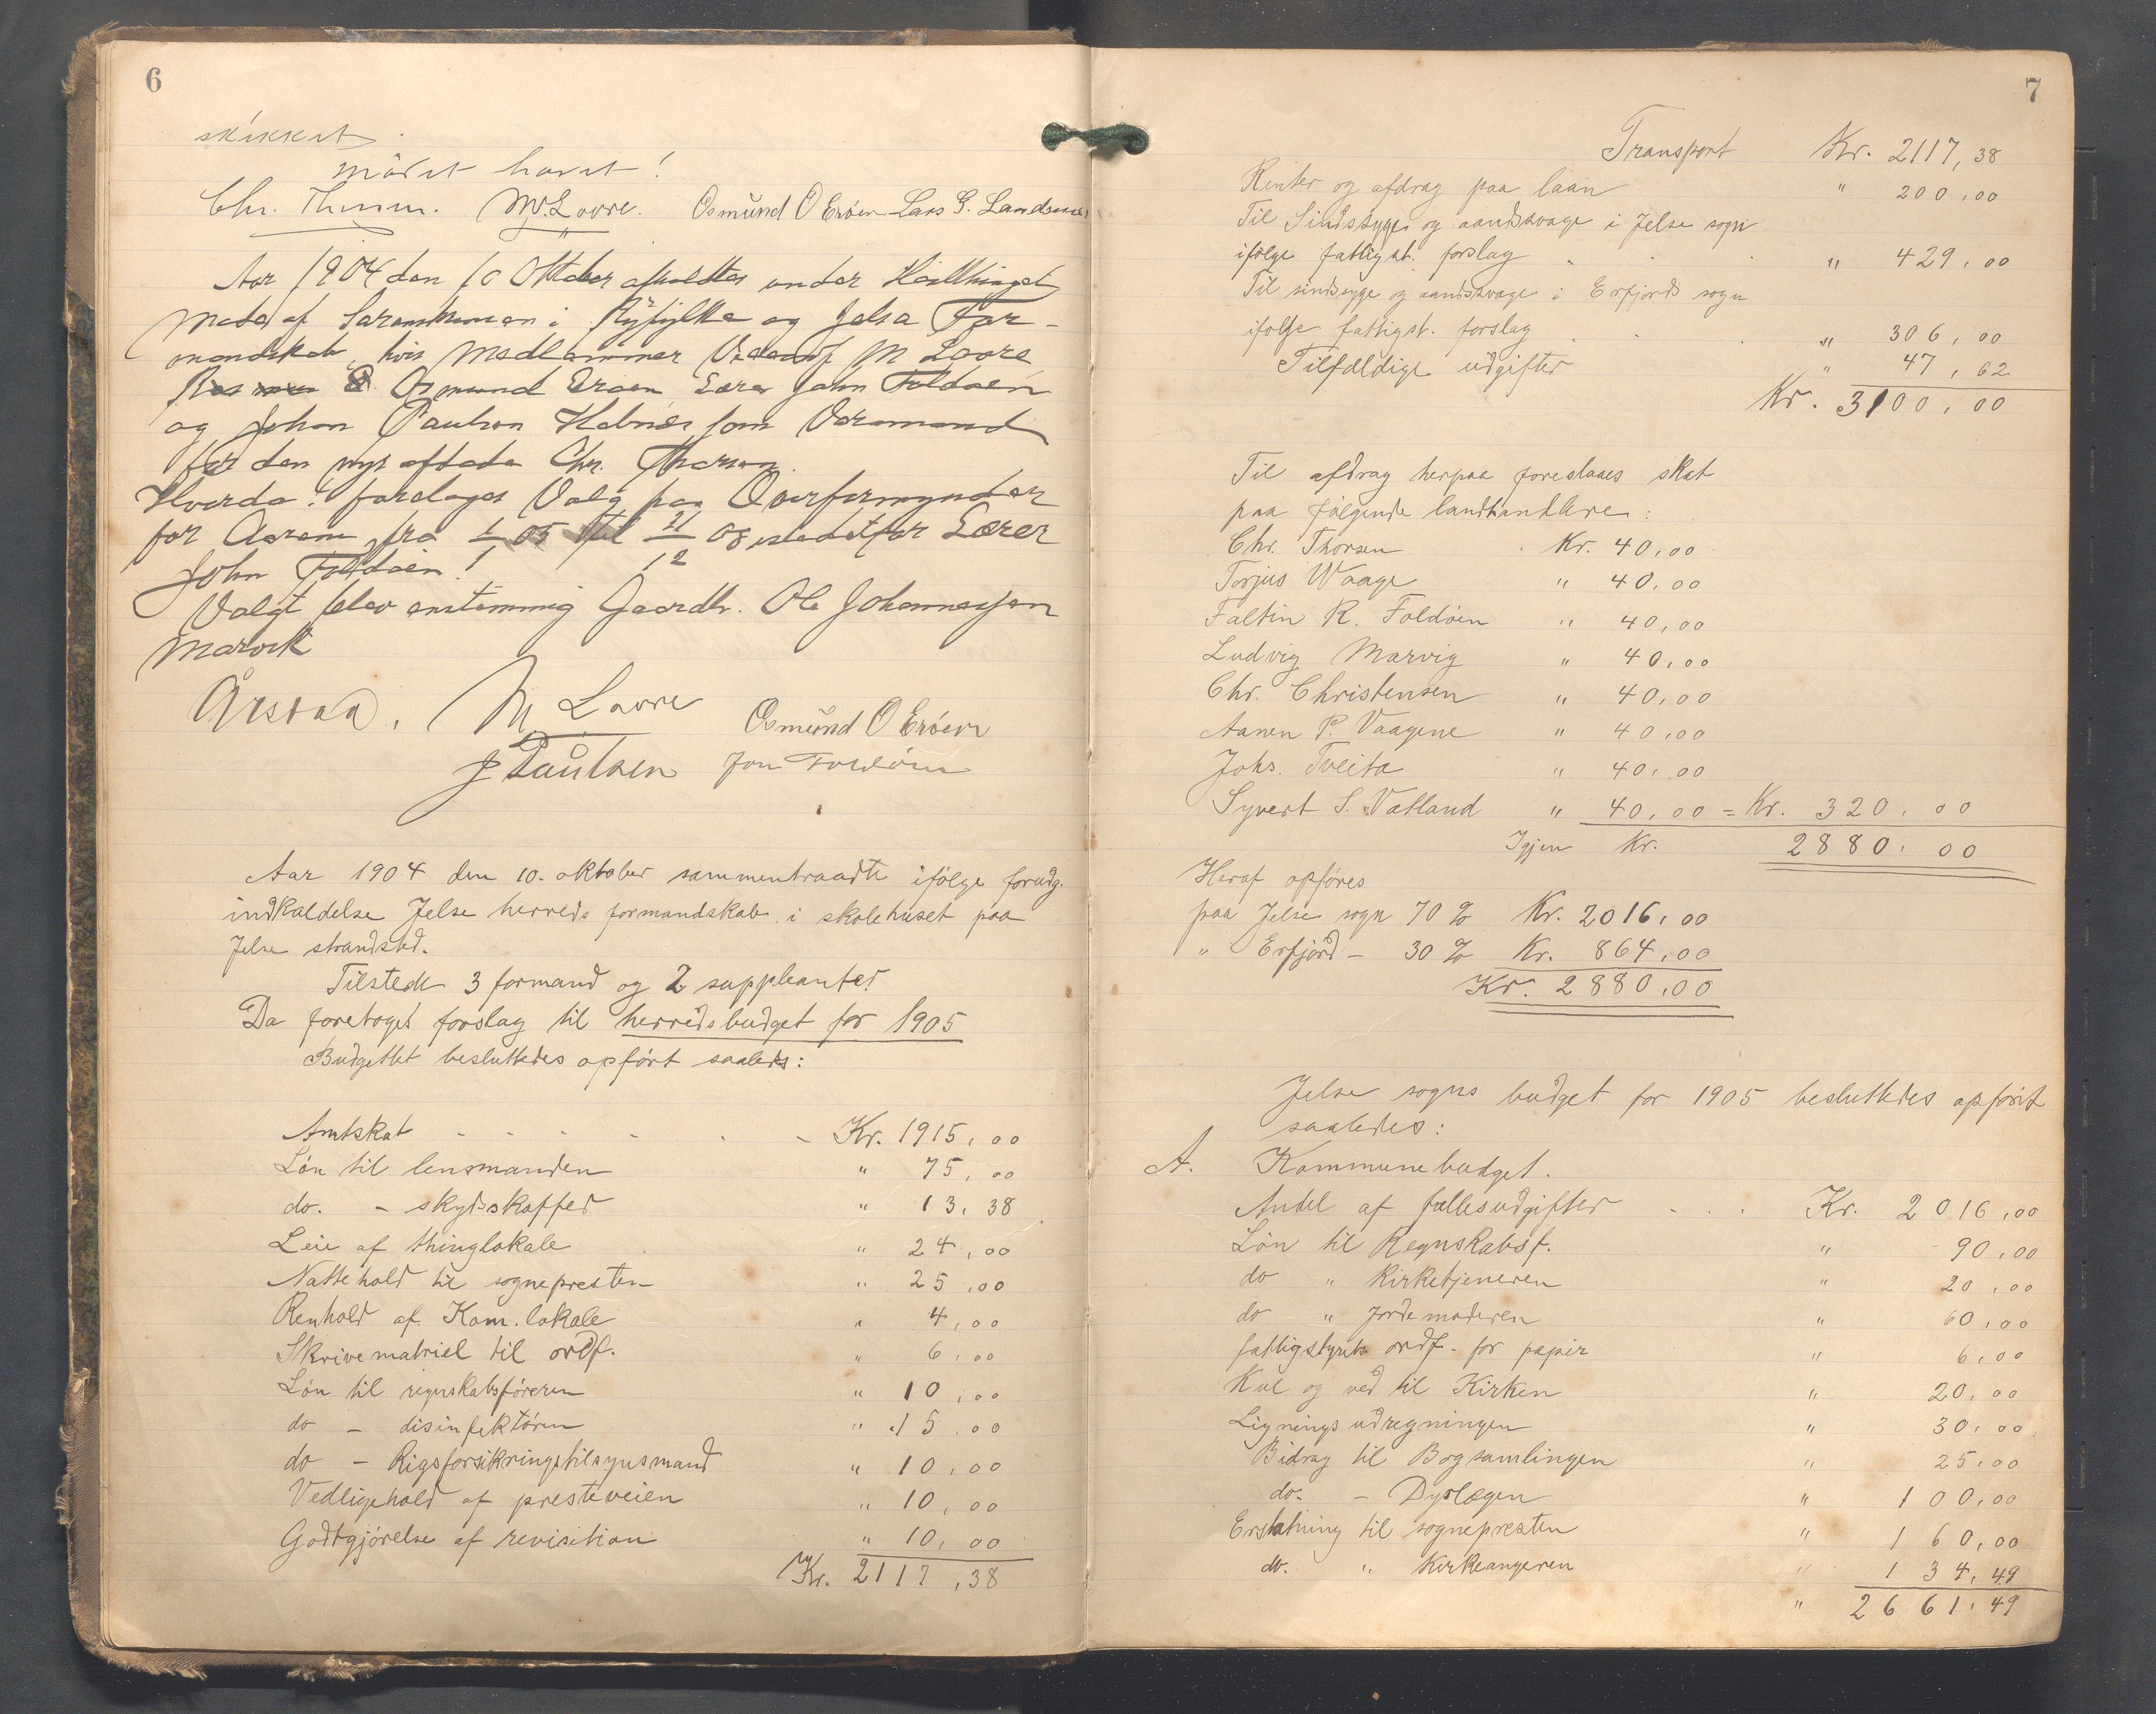 6
skikket
mödet hævet!
Chr. Thorsen. M. Lovre. Osmund O Eröen Lars G. Landsnes
Aar 1904 den 10 Oktober afholdtes under Høstthinget
Møde af Sorenskriveren i Ryfylke og Jelsa For-
mandskab, hvis Medlemmer M Lovre
Osmund Eroen, Lærer John Foldøen
og Johan Paulsen Hebnes som Varamand
for den nys afdøde Chr. Thorsen.
Hvorda! foretoges Valg paa Overformynder
for Aarene fra 1/1 05 til 31/12 08 istedetfor Lærer
John Foldøen!
Valgt blev enstemmig Gaardbr. Ole Johannessen
Marvik
Årstad. M Lovre Osmund O Eröen
J Paulsen Jon Foldöen
Aar 1904 den 10. oktober sammentraadte ifølge forudg.
indkaldelse Jelse herreds formandskab i skolehuset paa
Jelse strandsted.
Tilstede 3 formænd og 2 suppleanter
Da foretoges forslag til herredsbudget for 1905
Budgettet besluttedes opført saaledes:
Amtskat - - - - - - Kr. 1915,00
Løn til lensmanden " 75,00
do. - skydsskaffer " 13,38
Leie af thinglokale " 24,00
Nattehold til sognepresten " 25,00
Renhold af Kom. lokale " 4,00
Skrivematriel til ordf. " 6,00
Løn til regnskabsføreren " 10,00
do - disinfektøren " 15,00
do - Rigsforsikringstilsynsmand " 10,00
Vedligehold af presteveien " 10,00
Godtgjørelse af revisition " 10,00
Kr. 2117,38
7
Transport Kr. 2117,38
Renter og afdrag paa laan " 200,00
Til Sindssyge og aandssvage i Jelse sogn
ifølge fattigst. forslag " 429,00
Til sindssyge og aandssvage i Erfjords sogn
ifølge fattigst. forslag " 306,00
Tilfældige udgifter " 47,62
Kr. 3100,00
Til afdrag herpaa foreslaaes skat
paa følgende landhandlere:
Chr. Thorsen Kr. 40,00
Torjus Waage " 40,00
Faltin R. Foldøen " 40,00
Ludvig Marvig " 40,00
Chr. Christensen " 40,00
Aanen P. Vaagene " 40,00
Johs. Tveita " 40,00
Syvert S. Vatland " 40,00 = Kr. 320,00
Igjen Kr. 2880,00
Heraf opføres
paa Jelse sogn 70 % Kr. 2016,00
" Erfjord - 30 % Kr. 864,00
Kr. 2880,00
Jelse sogns budget for 1905 besluttedes opført
saaledes:
A. Kommunebudget.
Andel af fællesudgifter . . . Kr. 2016,00
Løn til Regnskabsf. " 90,00
do " Kirketjeneren " 20,00
do " Jordemoderen " 60,00
fattigstyrets ordf. for papir " 6,00
Kul og ved til Kirken " 20,00
Ligningsudregningen " 30,00
Bidrag til Bogsamlingen " 25,00
do. - Dyrlægen " 100,00
Erstatning til sognepresten " 160,00
do. " Kirkeangeren " 134,49
" 2661,49